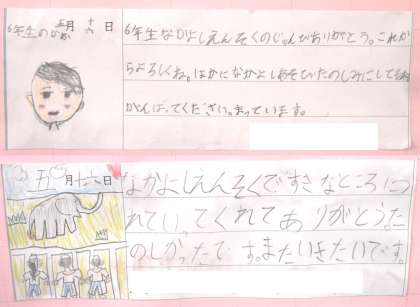 五月十六日
6年生のかお
6年生なかよしえんそくのじゅんびありがとう。これか
らよろしくね。ほかになかよしあそびたのしみにしてる
がんばってください。まっています。
五月十六日
なかよしえんそくですきなところにつ
れていってくれてありがとう。た
のしかったです。またいきたいです。